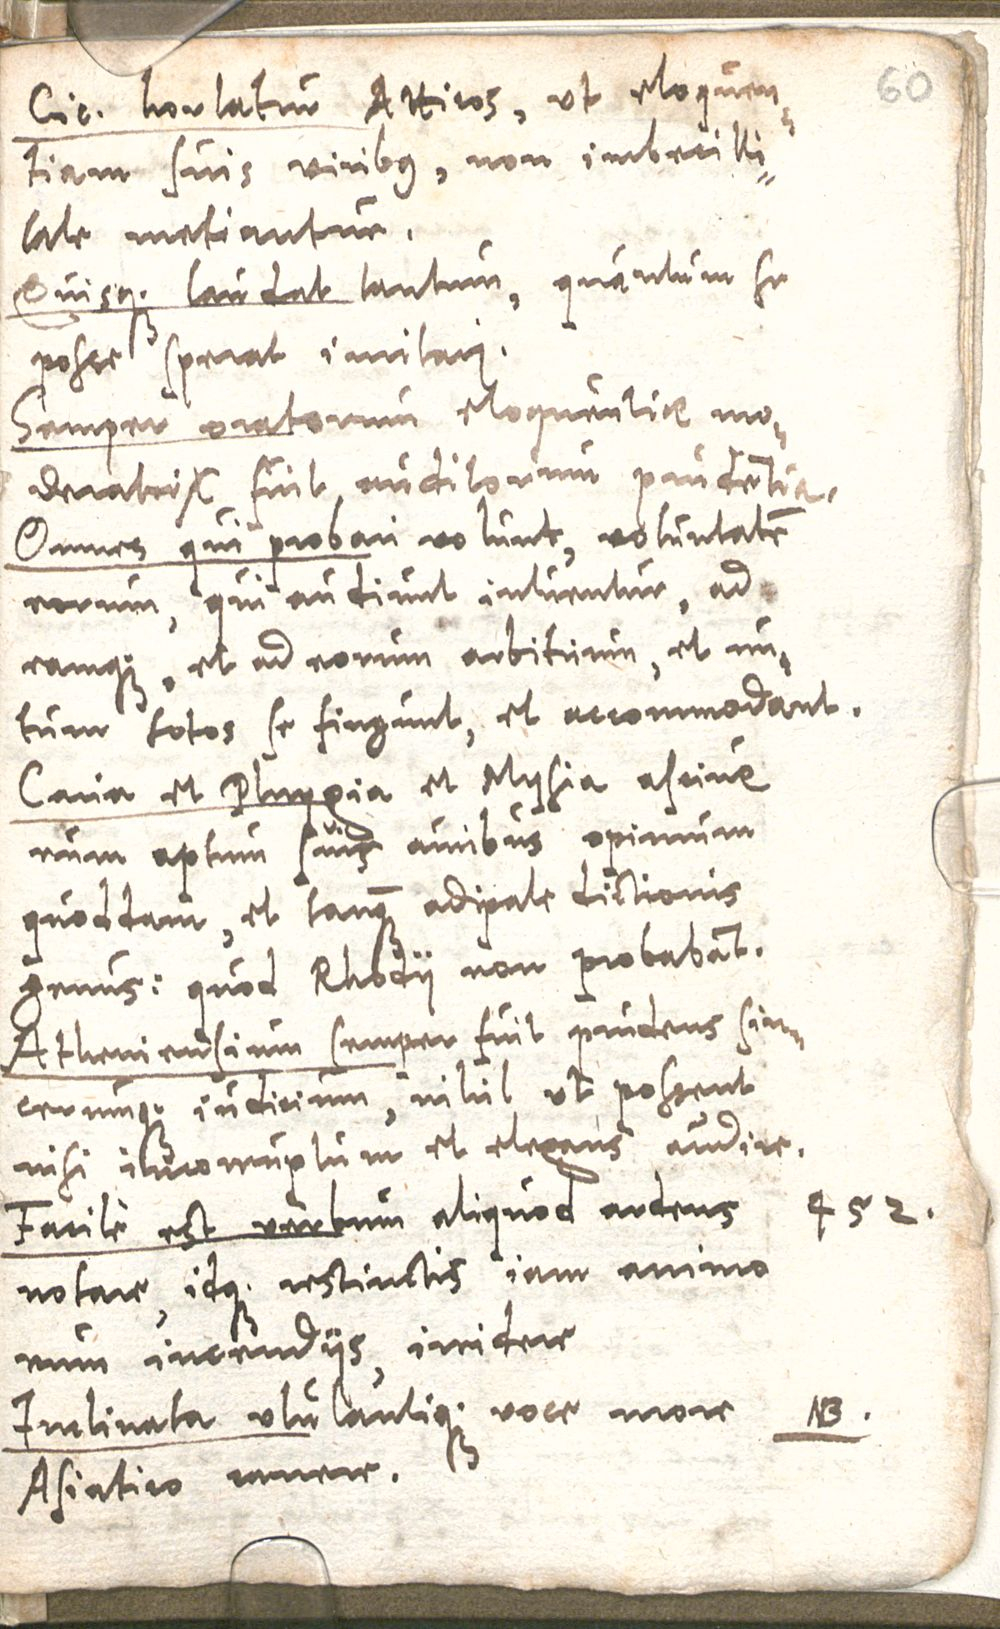 60
Cic. hortatur Atticos, ut eloquen„
tiam suis viribꝰ, non imbecilli„
tate metiantur.
Quisq. laudat tantum, quantum se
posse sperat imitari.
Semper oratorum eloquentiæ mo„
deratrix fuit auditorum prudētia.
Omnes qui probari volunt, voluntatē
eorum, qui audiunt intuentur, ad
eamq;, et ad eorum arbitrium, et nu„
tum totos se fingunt, et accommodant.
Caria et Phrygia et Mysia asciue
runt aptum suis auribus opimum
quoddam, et tanq̄ adipale dictionis
genus: quod Rhodij non probabāt.
Atheniensium semper fuit prudens sin„
cerumq. iudicium, nihil ut possent
nisi incorruptum et elegans audire.
Facilè est verbum aliquod ardens 452.
notare, idq. restinctis iam animo
rum incendijs, irridere
Inclinata ululantiq. voce more NB.
Asiatico canere.